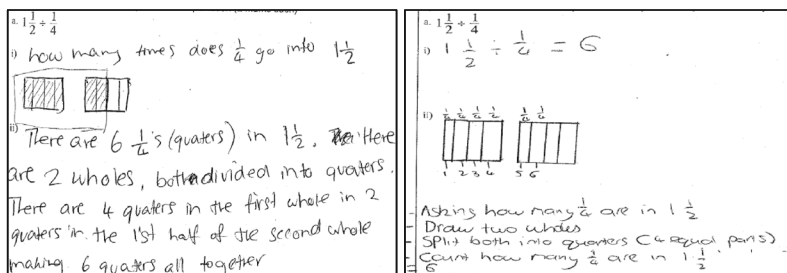 a. 1 1/2 ÷ 1/4
i) how many times does 1/4 go into 1 1/2
ii) There are 6 1/4's (quaters) in 1 1/2. Here
are 2 wholes, both divided into quaters.
There are 4 quaters in the first whole in 2
quaters in the 1'st half of the second whole
making 6 quaters all together
a. 1 1/2 ÷ 1/4
i) 1 1/2 ÷ 1/4 = 6
ii)
1/4 1/4 1/4 1/4 1/4 1/4
1 2 3 4 5 6
- Asking how many 1/4 are in 1 1/2
- Draw two wholes
- Split both into quarters (4 equal parts)
- Count how many 1/4 are in 1 1/2
= 6